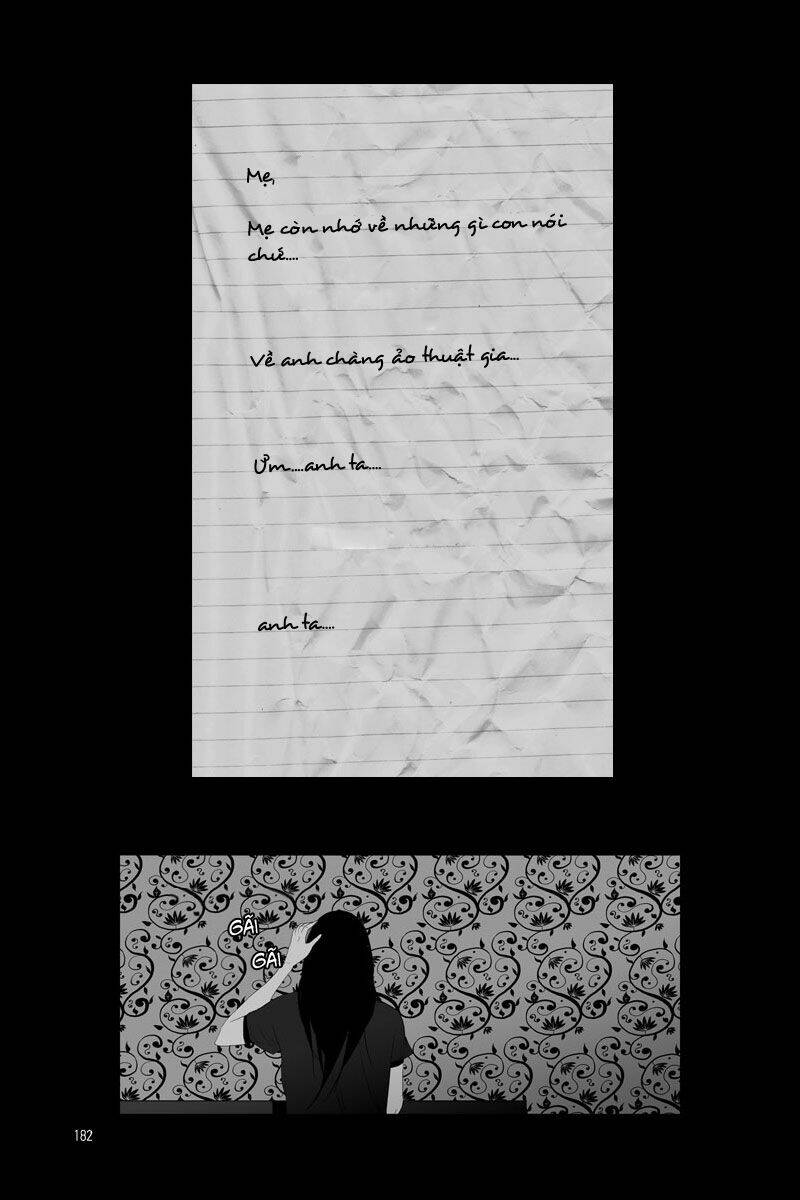 Mẹ,
Mẹ còn nhớ về những gì con nói
chứ....
Về anh chàng ảo thuật gia...
Ưm....anh ta....
anh ta....
GÃI
GÃI
182